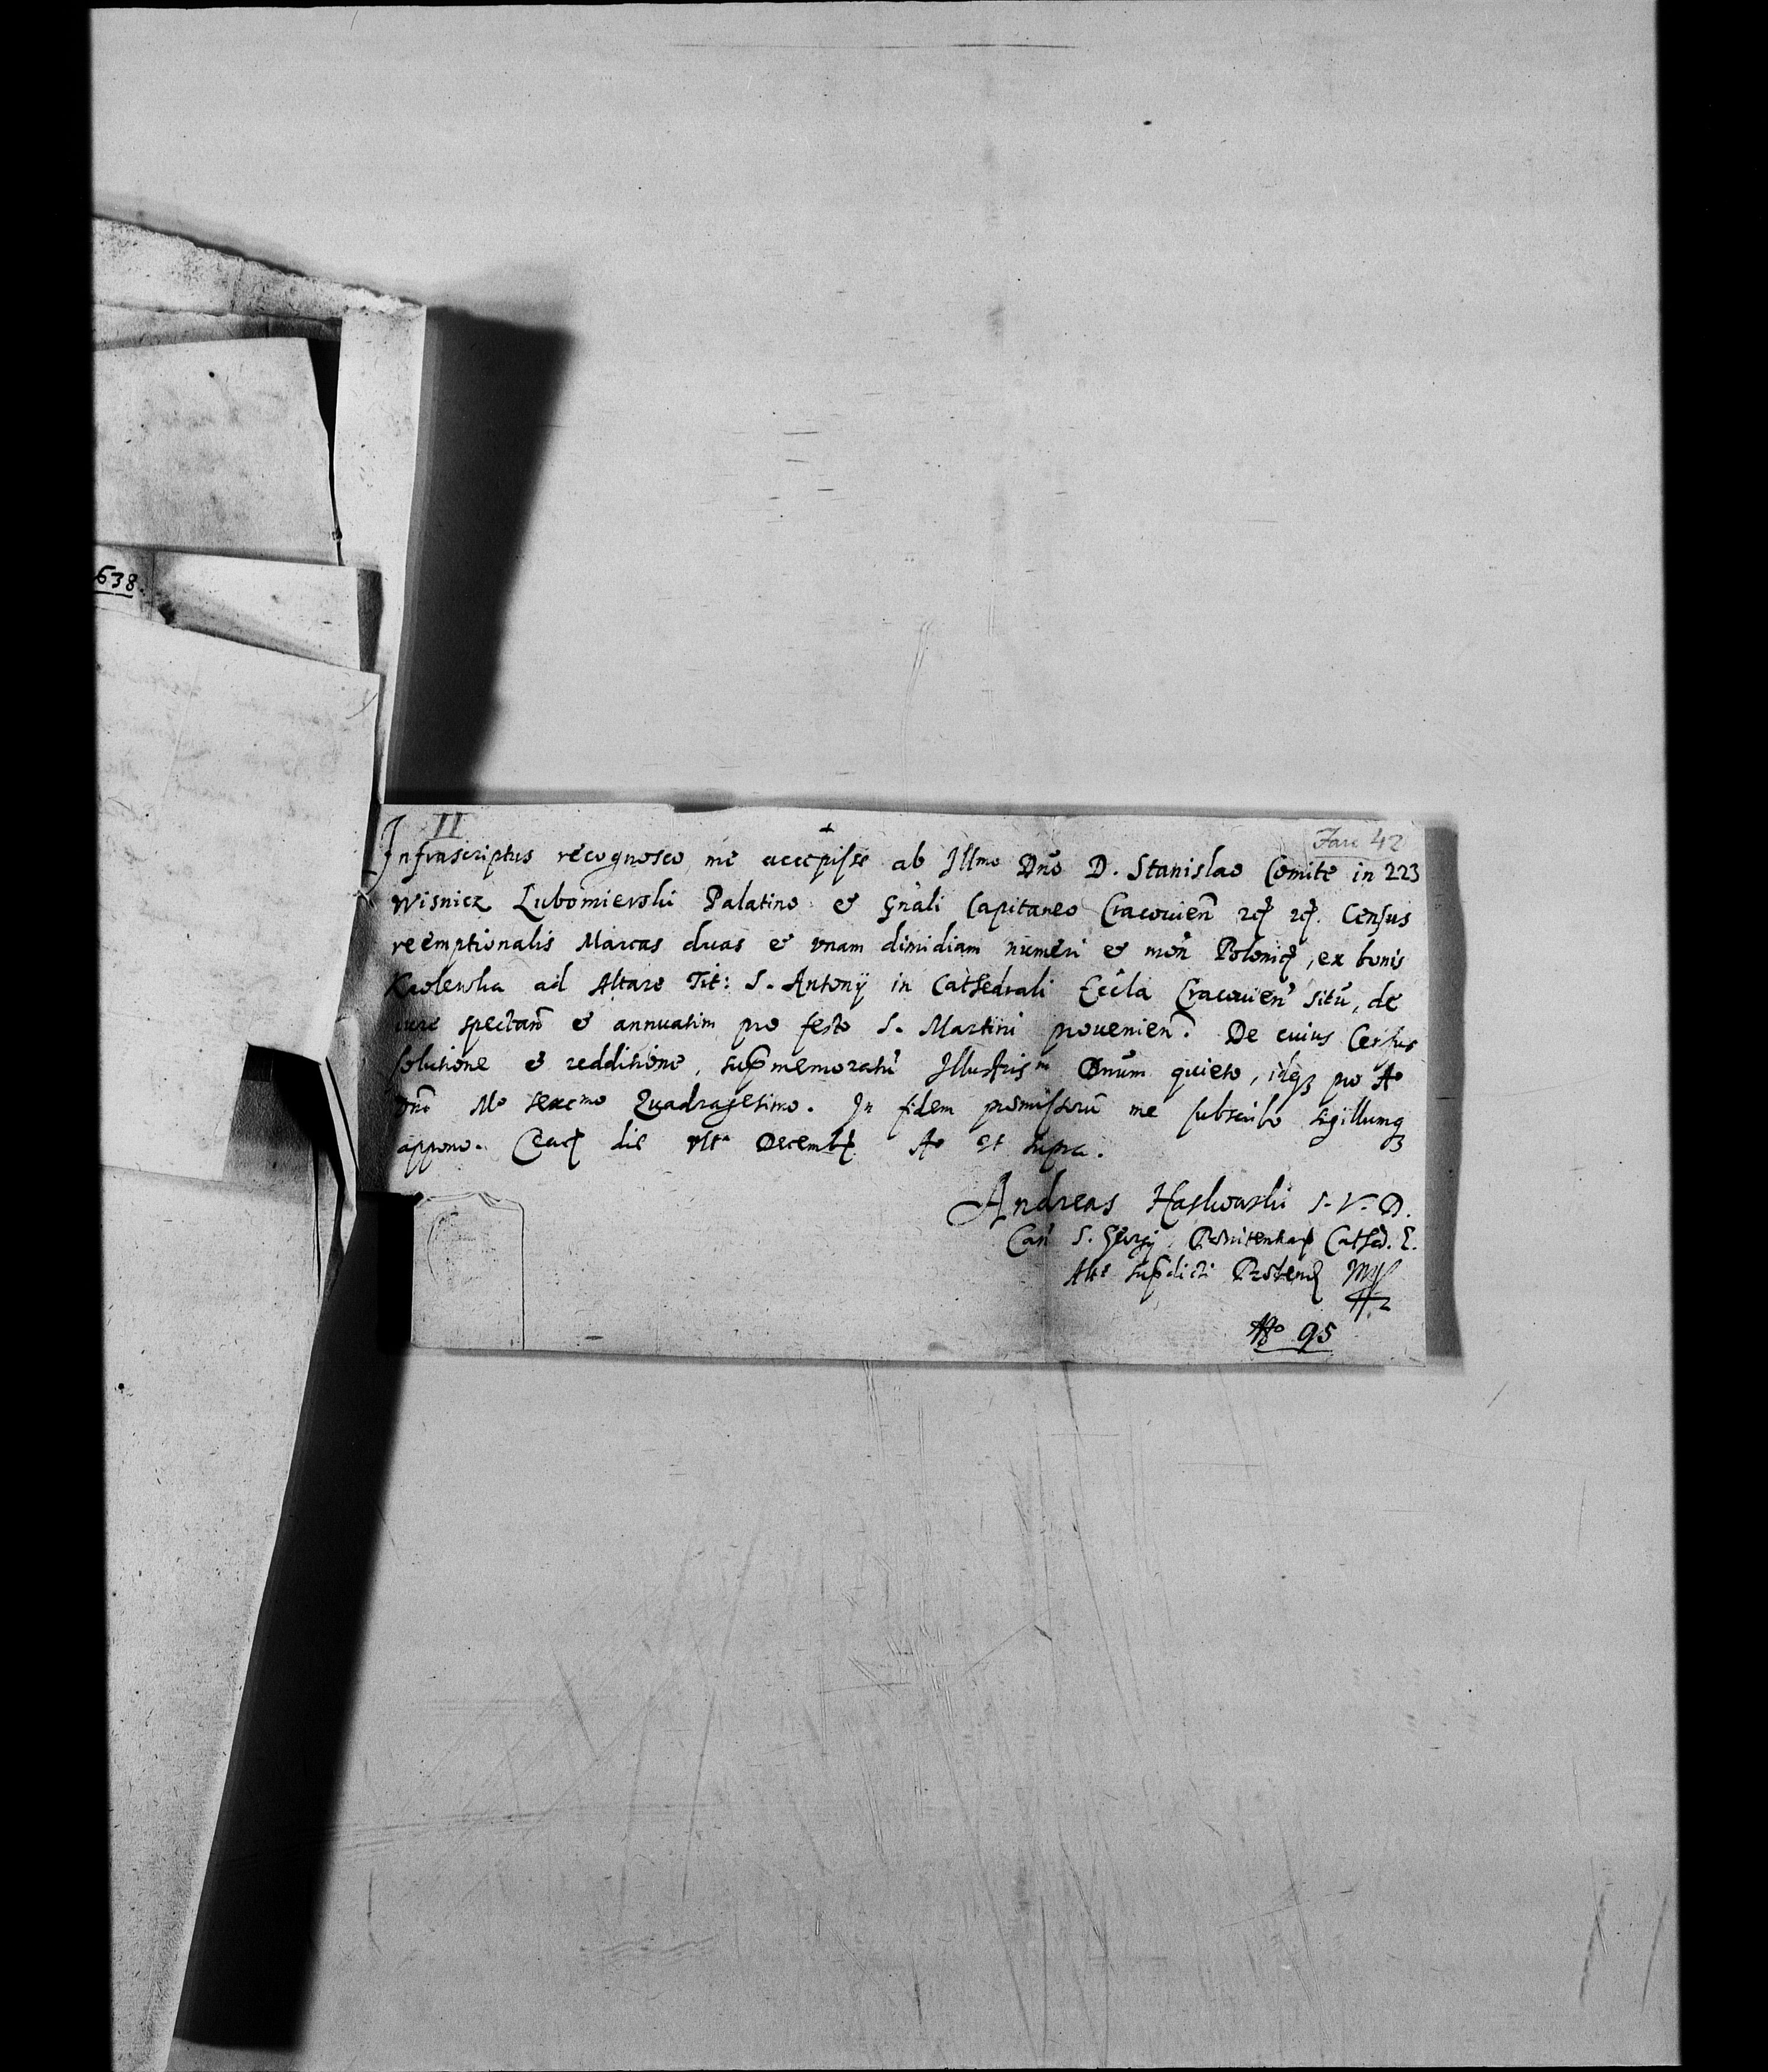 638.
II
+
Fasc 42
Infrascriptus recognosco me accepisse ab Illmo Dno D. Stanislao Comite in 223
Wisnicz Lubomierski Palatino & Gnāli Capitaneo Cracouien̄ Censũs
reemptionalis Marcas duas & vnam dimidiam numeri & mon̄ Polonic̨, ex bonis
Krolewka ad Altare Tit: S. Antonij in Cathedrali Eccla Cracouien̄ sitũ, de
iure spectan̄ & annuatim pro festo S. Martini prouenien̄. De cuius Census
solutione & redditione, supmemoratũ Illustrism Dnũm quieto, idq3 pro Ao
Dni Mo sexcmo Quadragesimo. In fidem prõmissorũ me subscribo sigillumq3
appono. Crac̨ die vlta Decemb Ao vt supra.
Andreas Haskowski I. V. D.
Can̄ S. Georgij, Pœnitentiar Cathed. E.
Altis supdicti Prõbend mp
No 95